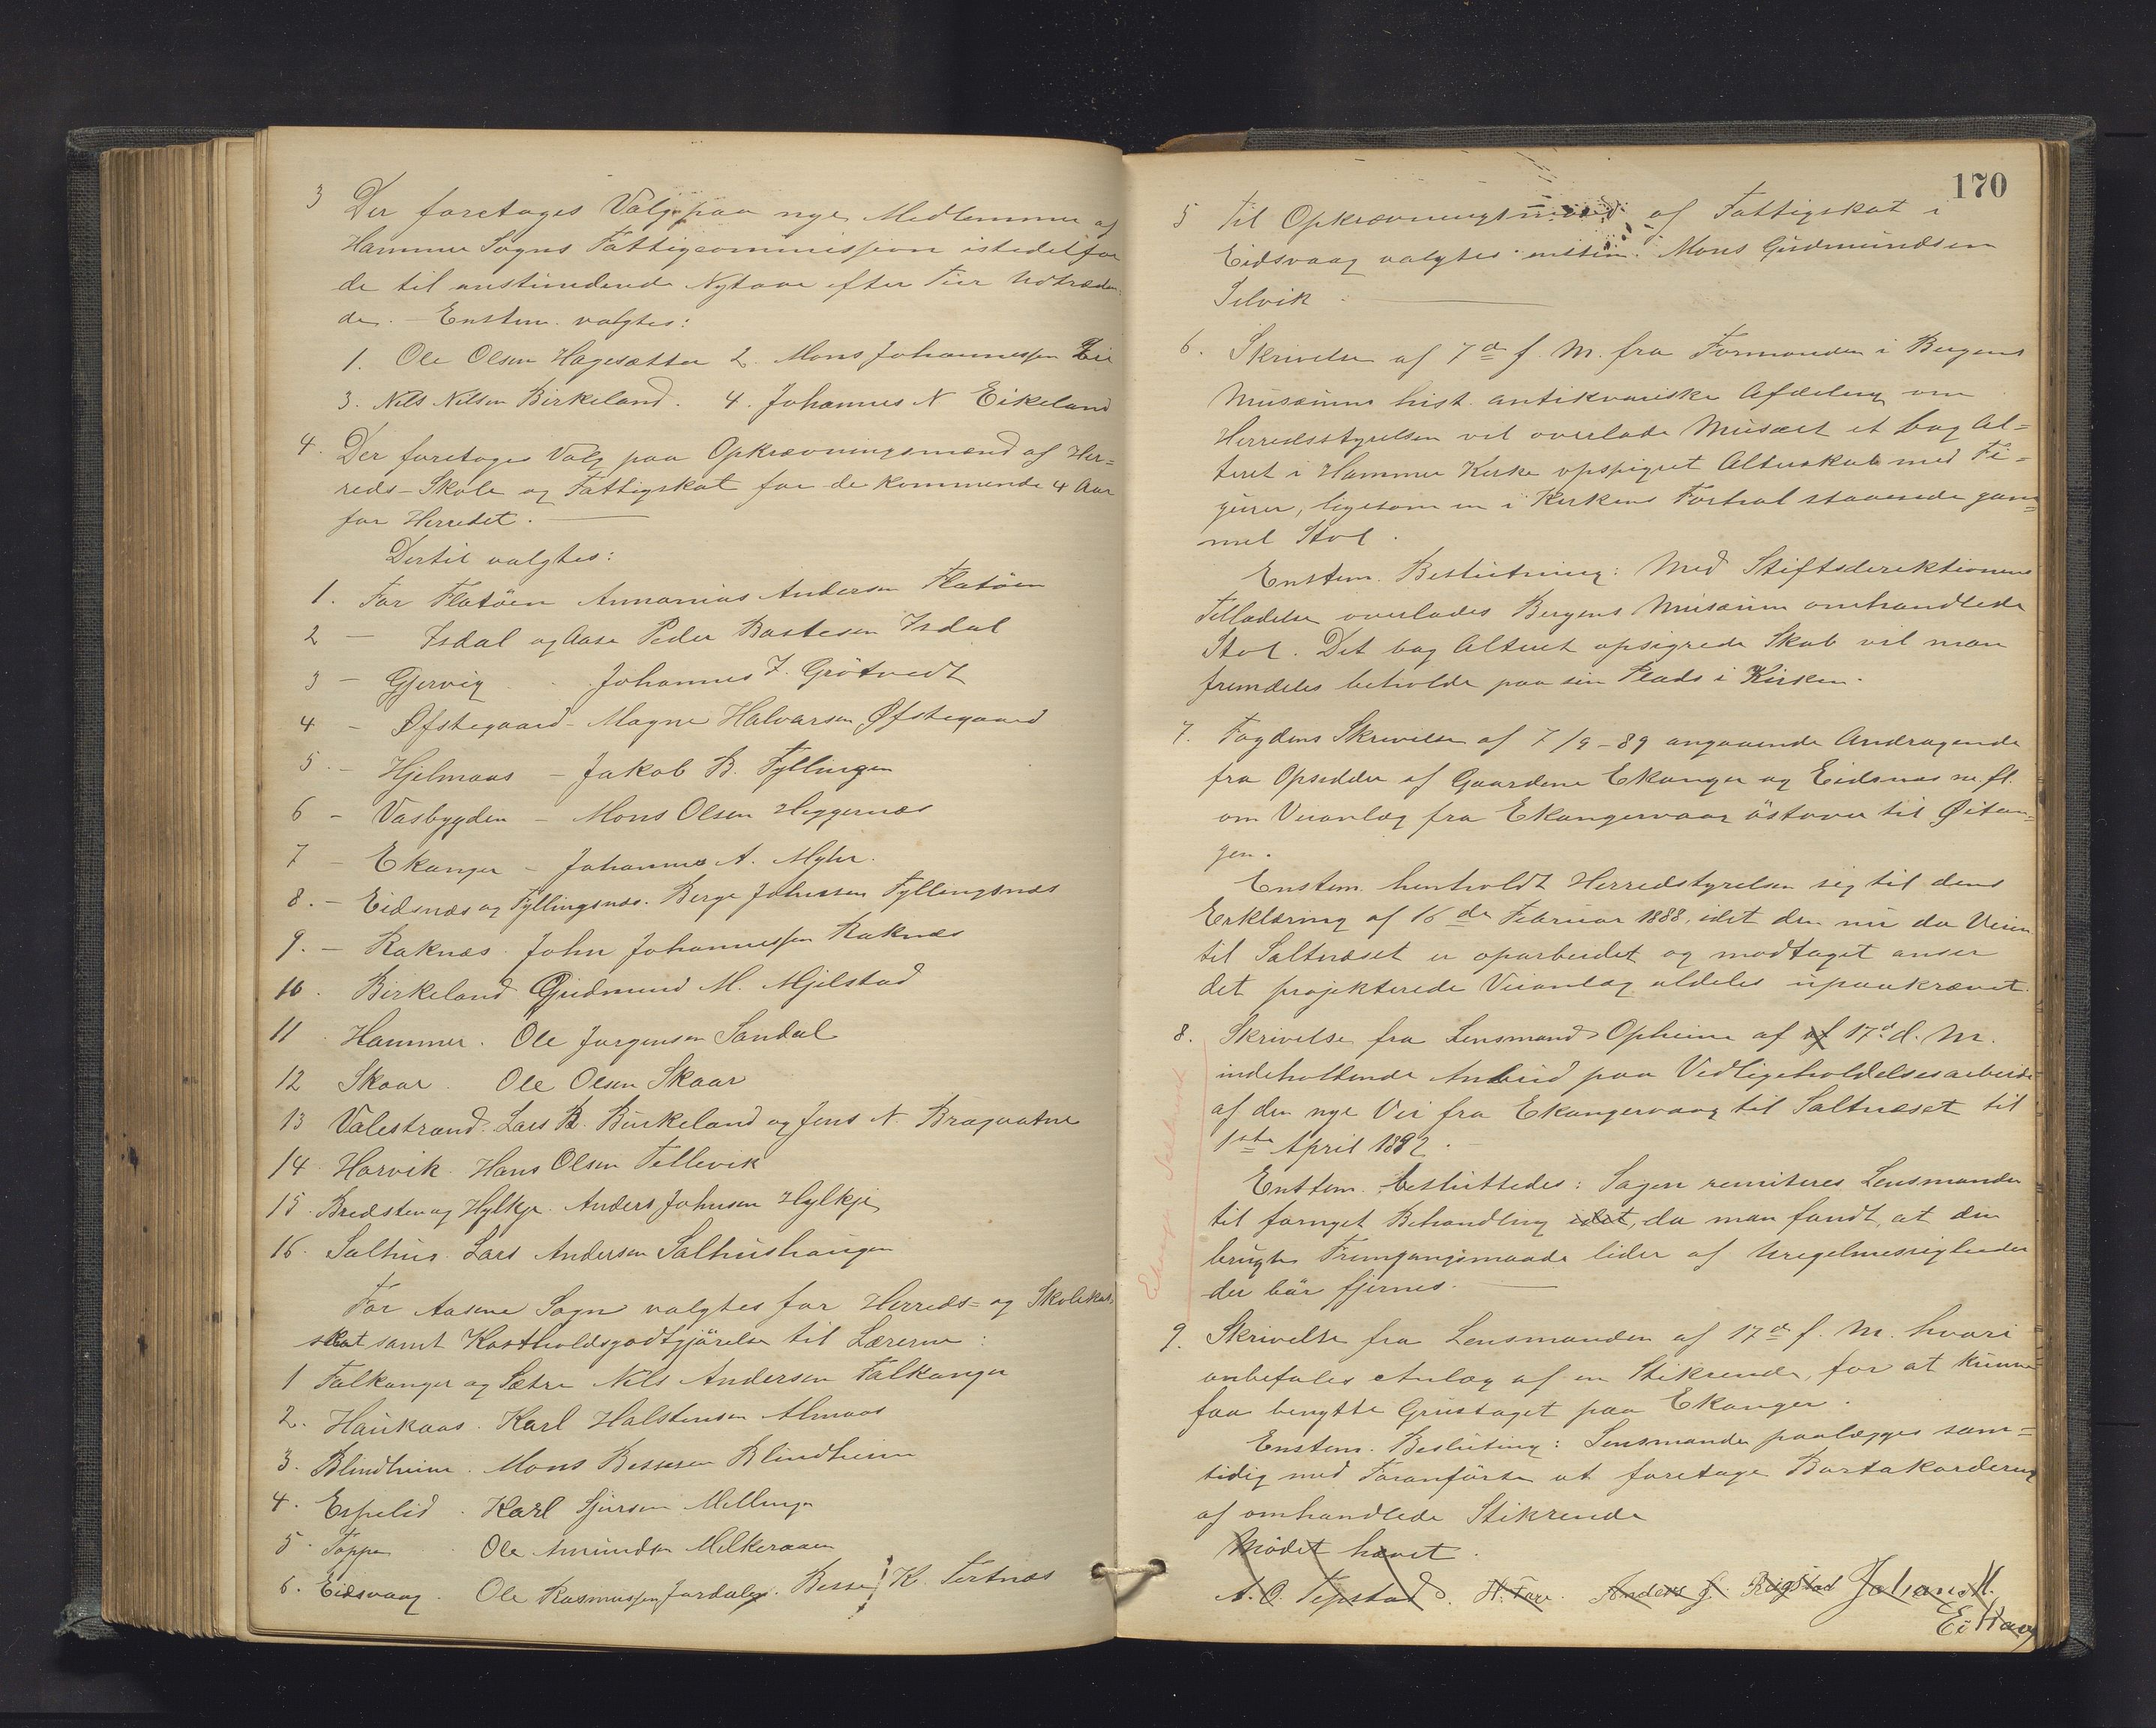 3 Der foretages Valg paa nye Medlemmer af
Hammer Sogns Fattigcommission istedetfor
de til anstundende Nytaar efter Tur Udtræden-
de. – Enstem. valgtes:
1. Ole Olsen Hagesætter 2. Mons Johannessen
3. Nils Nilsen Birkeland. 4. Johannes N Eikeland
4. Der foretoges Valg paa Opkrævningsmænd af Her-
reds- Skole og Fattigskat for de kommende 4 Aar
for Herredet.
Dertil valgtes:
1. For Flatöen Annanias Andersen Flatöen
2 – Isdal og Aase Peder Bastesen Isdal
3 – Gjervig Johannes J. Grötvedt
4 – Øfstegaard – Magne Halvorsen Øfstegaard
5. – Hjelmaas – Jakob B. Fyllingen
6 – Vasbygden – Mons Olsen Heggernæs
7 – Ekanger – Johannes A. Myhr.
8. – Eidsnæs og Fyllingsnæs. Berge Johnssen Fyllingsnæs
9. – Raknæs. John Johannessen Raknæs
10. Birkeland Gudmund M. Mjelstad
11 Hammer. Ole Jørgensen Sandal
12 Skaar. Ole Olsen Skaar
13 Valestrand. Lars B. Birkeland og Jens N. Bragvatne
14 Horvik. Hans Olsen Tellevik
15. Bredsten og Hylkje. Anders Johnsen Hylkje
16. Salhus. Lars Andersen Salhushaugen
For Aasene Sogn valgtes for Herreds- og Skolekas-
skat samt Kostholdsgodtgjörelse til Lærerne:
1 Falkanger og Sætre Nils Andersen Falkanger
2. Haukaas. Karl Halstensen Almaas
3. Blindheim. Mons Bessesen Blindheim
4. Espelid. Karl Sjursen Mellinge
5. Toppe Ole Amundsen Melkeraaen
6. Eidsvaag. Ole Rasmussen Jordalen. Besse K. Tertnæs
170
5 Til Opkrævningsmænd af Fattigskat i
Eidsvaag valgtes enstem. Mons Gudmundsen
Selvik
6. Skrivelse af 7de f. M. fra Formanden i Bergens
Musæums hist. antikvariske Afdeling om
Herredsstyrelsen vil overlade Musæet et bag Al-
teret i Hammer Kirke opspigret Alterskab med Fi-
gurer, ligesom en i Kirkens Forhal staaende gam-
mel Stol.
Enstem. Beslutning: Med Stiftsdirektionens
Tilladelse overlades Bergens Musæum omhandlede
Stol. Det bag Alteret opsigrede Skab vil man
fremdeles beholde paa sin Plads i Kirken.
7. Fogdens Skrivelse af 7/9-89 angaaende Andragende
fra Opsidder af Gaardene Ekanger og Eidsnæs m. fl.
om Veianlæg fra Ekangervaag östover til Øitan-
gen.
Enstem. henholdt Herredstyrelsen sig til dens
Erklæring af 16de Februar 1888, idet den nu da Veien
til Saltnæset er oparbeidet og modtaget anser
det projekterede Veianlæg aldeles upaakrævet.
8. Skrivelse fra Lensmand Opheim af af 17d. d. M.
indeholdende Anbud paa Vedligeholdelsesarbeide
af den nye Vei fra Ekangervaag til Saltnæset til
1ste April 1892.
Enstem. besluttedes: Sagen remiteres Lensmanden
til fornyet Behandling idet, da man fandt, at den
brugte Fremgangsmaade lider af Uregelmessigheder
der bör fjernes.
9. Skrivelse fra Lensmanden af 17de f. M. hvori
anbefales Anlæg af en Stikrende, for at kunne
faa benytte Grustaget paa Ekanger.
Enstem. Beslutning: Lensmanden paalægges sam-
tidig med Foranförte at foretage Bortakordering
af omhandlede Stikrende
Mödet hævet.
A. O. Tepstad. H. Faye. Anders J. Rigstad Johan M.
Eitvaag